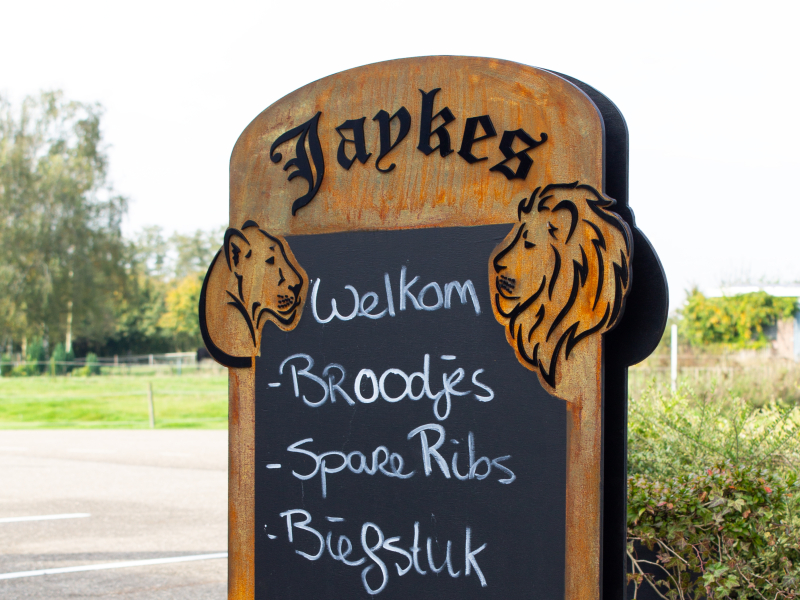 Jaykes
Welkom
- Broodjes
- Spare Ribs
- Biefstuk